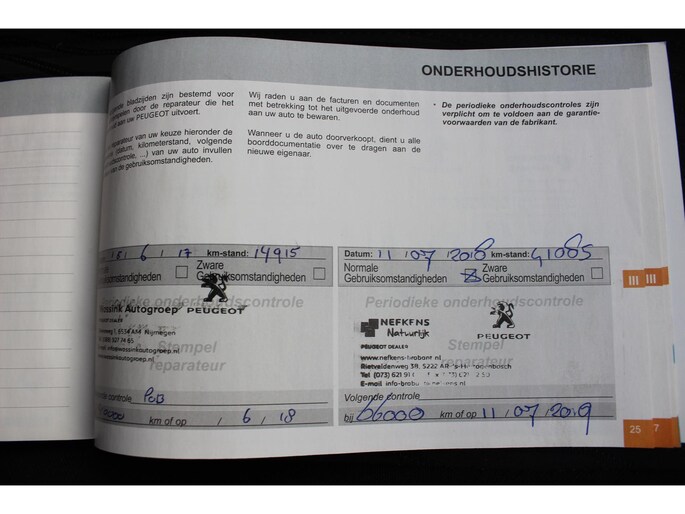 ONDERHOUDSHISTORIE
bladzijden zijn bestemd voor
door de reparateur die het
uw PEUGEOT uitvoert.
van uw keuze hieronder de
(datum, kilometerstand, volgende
...) van uw auto invullen
de gebruiksomstandigheden.
Wij raden u aan de facturen en documenten
met betrekking tot het uitgevoerde onderhoud
aan uw auto te bewaren.
Wanneer u de auto doorverkoopt, dient u alle
boorddocumentatie over te dragen aan de
nieuwe eigenaar.
• De periodieke onderhoudscontroles zijn
verplicht om te voldoen aan de garantie-
voorwaarden van de fabrikant.
/ 6 / 17 km-stand: 14915
Zware
Gebruiksomstandigheden
Periodieke onderhoudscontrole
Autogroep PEUGEOT
Nijmegen
Stempel
reparateur
controle
km of op / 6 / 18
Datum: 11 / 07 / 2018 km-stand: 41085
Normale Zware
Gebruiksomstandigheden Gebruiksomstandigheden
Periodieke onderhoudscontrole
NEFKENS
Natuurlijk
PEUGEOT
PEUGEOT DEALER
Stempel
reparateur
www.nefkens-brabant.nl
Rietveldenweg 38, 5222 AR
Tel (073) 621
E-mail
Volgende controle
bij 66000 km of op 11 / 07 / 2019
III III
25 7